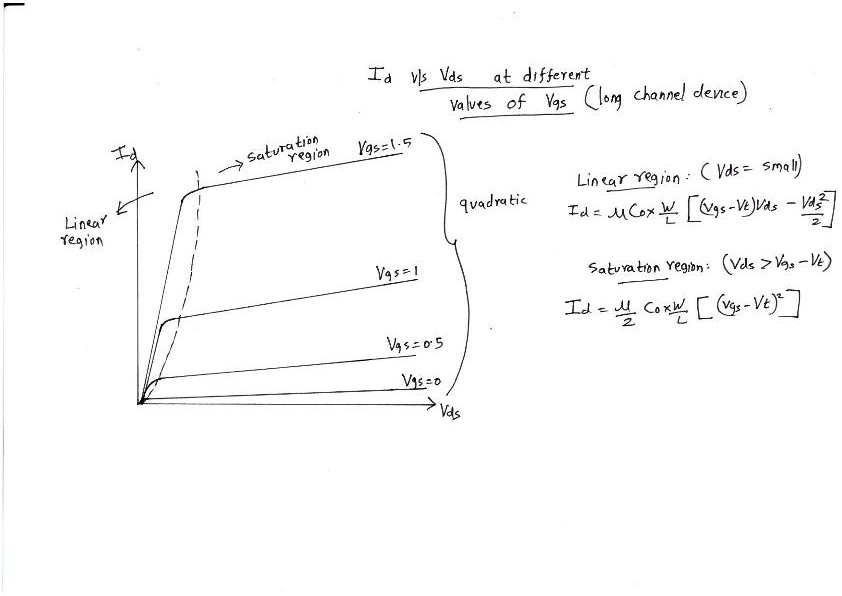 Id v/s Vds at different
values of Vgs (long channel device)
Id
saturation
region
Vgs=1.5
Linear
region
quadratic
Vgs=1
Vgs=0.5
Vgs=0
Vds
Linear region: (Vds= small)
Id = μCox W/L [(Vgs-Vt)Vds - Vds²/2]
Saturation region: (Vds > Vgs-Vt)
Id = μ/2 Cox W/L [(Vgs-Vt)²]